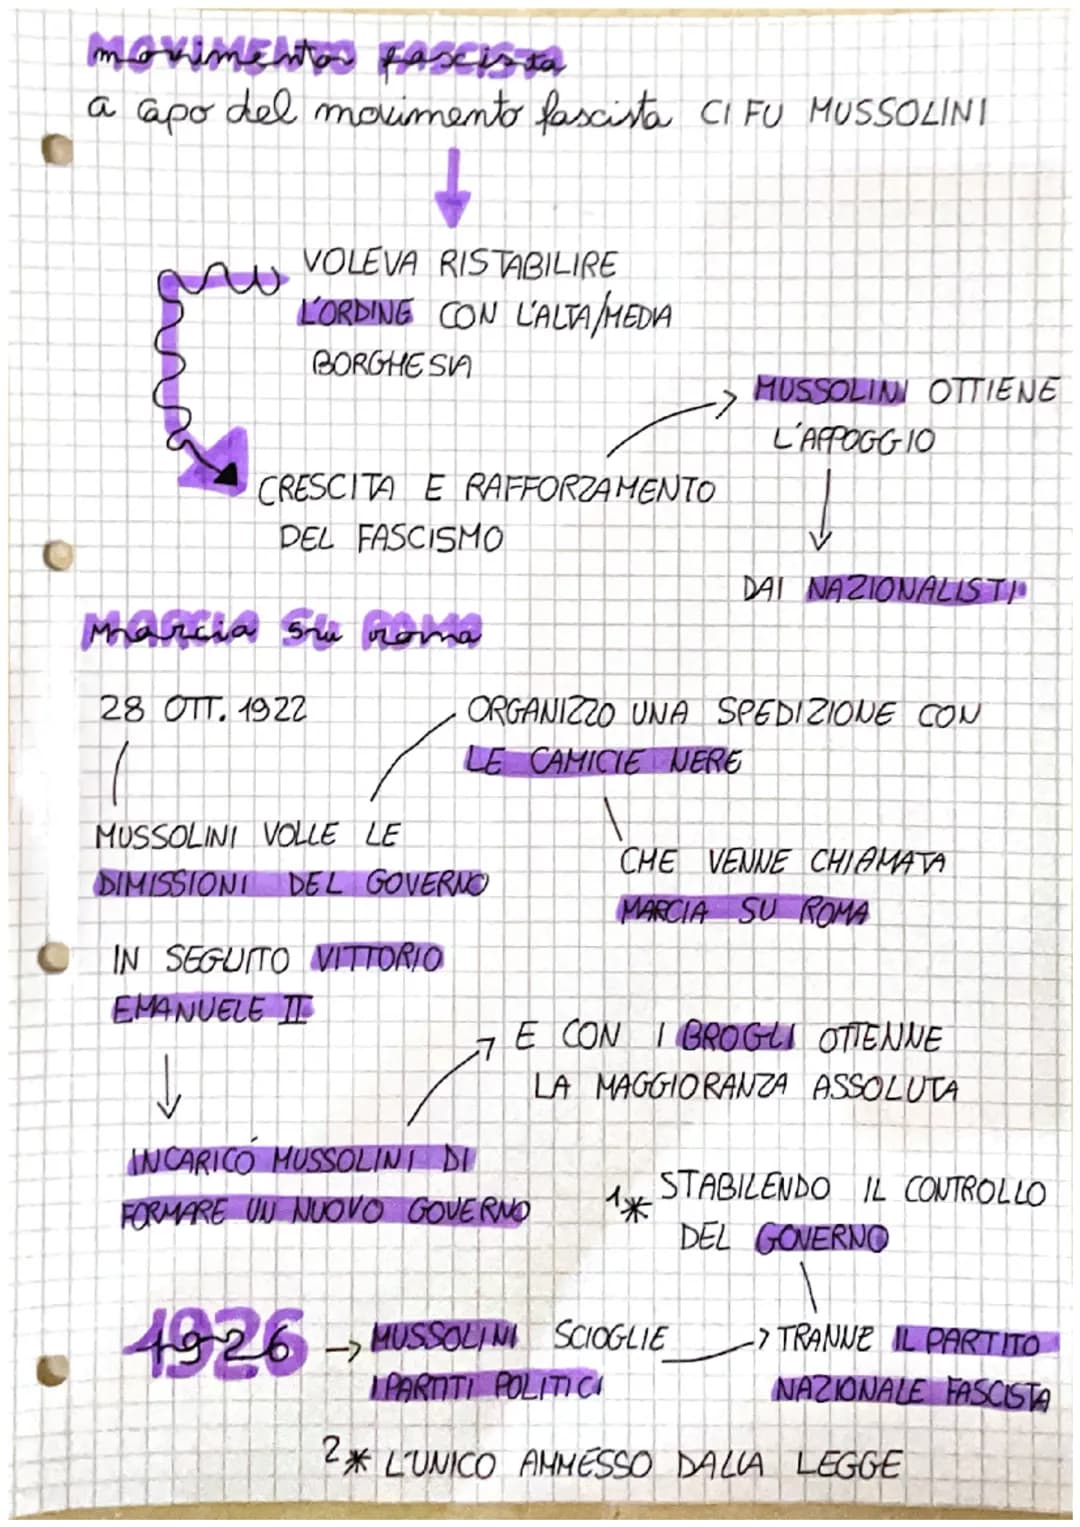 movimento fascista
a capo del movimento fascista CI FU MUSSOLINI
VOLEVA RISTABILIRE
L'ORDINE CON L'ALTA/MEDIA
BORGHESIA
MUSSOLINI OTTIENE
L'APPOGGIO
CRESCITA E RAFFORZAMENTO
DEL FASCISMO
DAI NAZIONALISTI
Marcia su roma
28 OTT. 1922
ORGANIZZO UNA SPEDIZIONE CON
LE CAMICIE NERE
MUSSOLINI VOLLE LE
DIMISSIONI DEL GOVERNO
CHE VENNE CHIAMATA
MARCIA SU ROMA
IN SEGUITO VITTORIO
EMANUELE II
E CON I BROGLI OTTENNE
LA MAGGIORANZA ASSOLUTA
INCARICÓ MUSSOLINI DI
FORMARE UN NUOVO GOVERNO
1* STABILENDO IL CONTROLLO
DEL GOVERNO
1926 → MUSSOLINI SCIOGLIE
I PARTITI POLITICI
→ TRANNE IL PARTITO
NAZIONALE FASCISTA
2* L'UNICO AMMESSO DALLA LEGGE